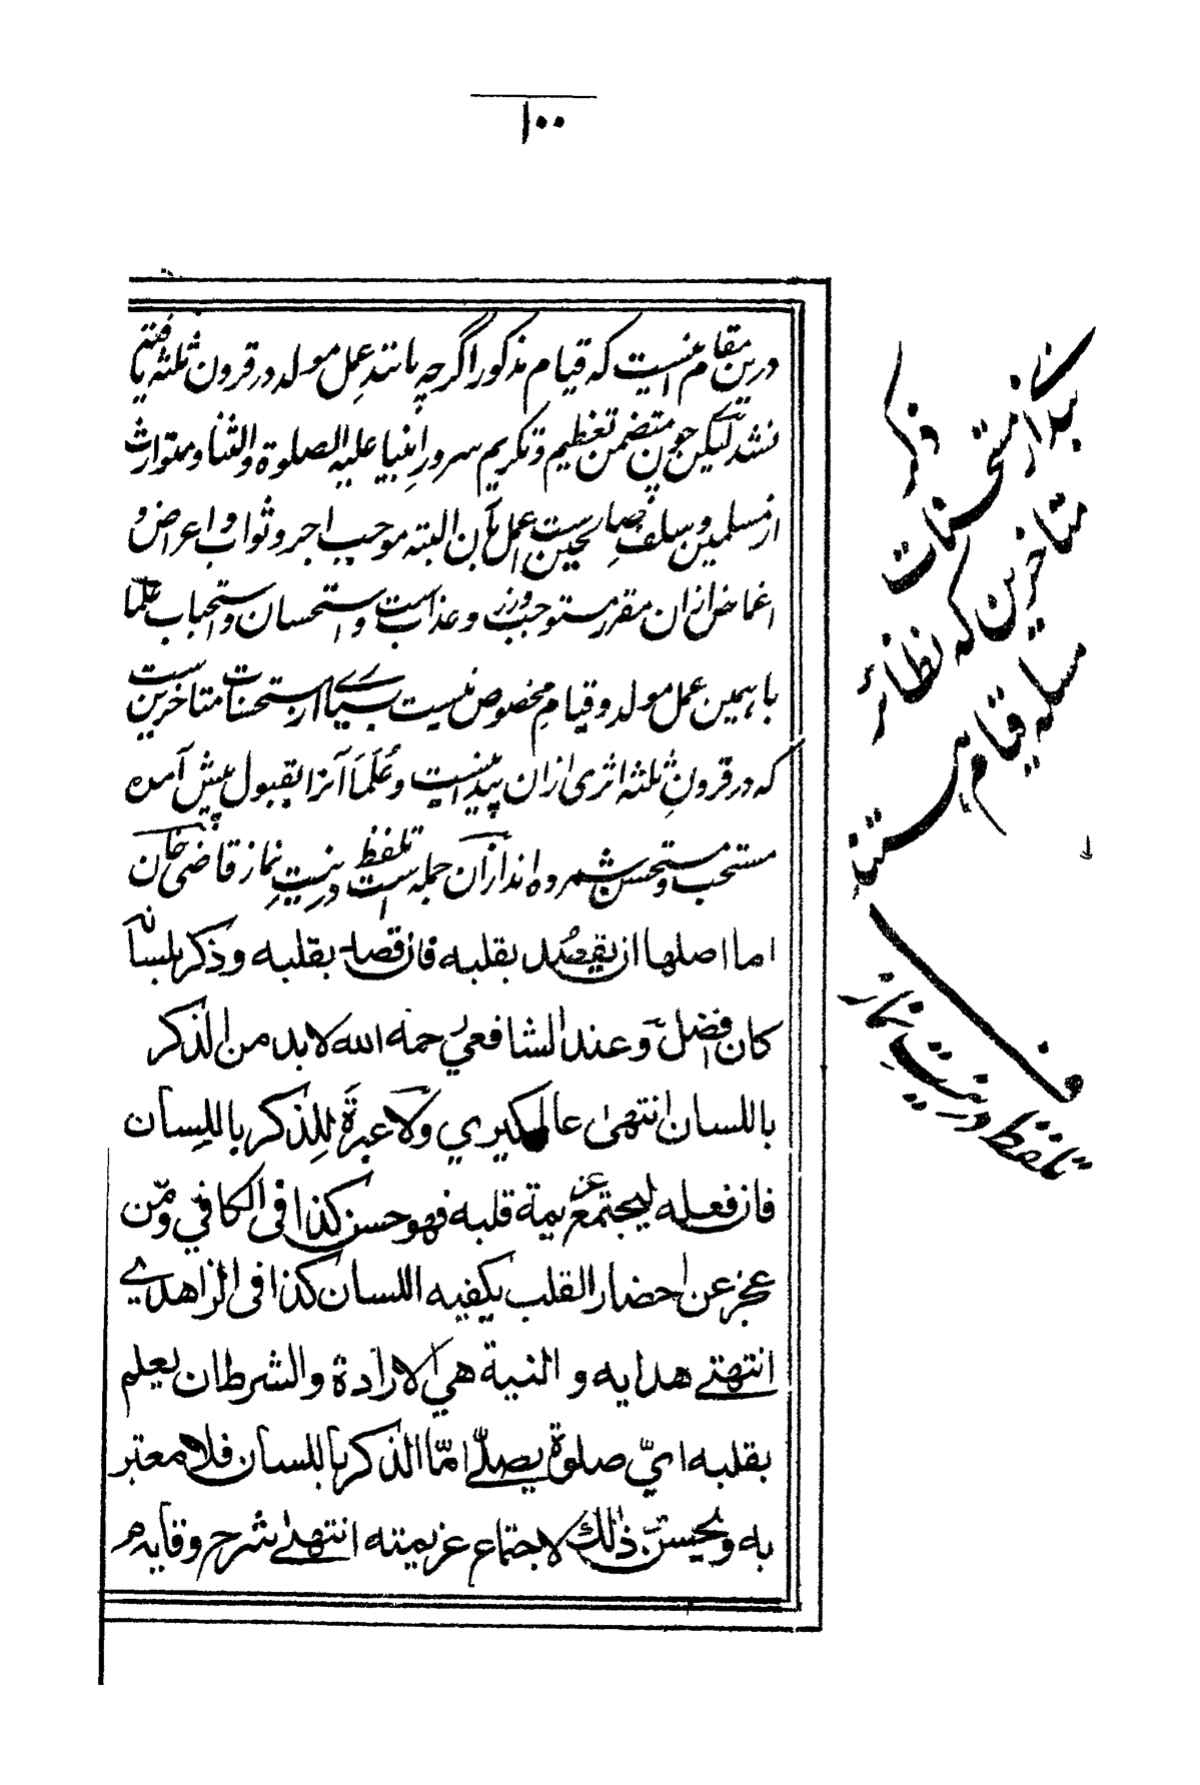 ۱۰۰
درین مقام نیست که قیام مذکور اگرچه مانند عمل مولد در قرون ثلثه یافته
نشد لیکن چون متضمن تعظیم و تکریم سرور انبیا علیه الصلوة والثنا و متوارث
از مسلمین و سلف صالحین ست عمل بآن البته موجب اجر و ثواب و اعراض و
اغماض ازان مقرر مستوجب وزر و عذاب ست و استحسان و استحباب علما
با همین عمل مولد و قیام مخصوص نیست بسیاری از مستحسنات متاخرین ست
که در قرون ثلثه اثری ازان پیدا نیست و علما آنرا بقبول پیش آمده
مستحب و مستحسن شمرده اند ازان جمله است تلفظ در نیت نماز قاضی خان
اما اصلها ان یقصد بقلبه فان قصد بقلبه وذکر بلسانه
کان افضل وعند الشافعي رحمه الله لابد من الذکر
باللسان انتهی عالمکیري ولا عبرة للذکر باللسان
فان فعله لیجتمع عزیمة قلبه فهو حسن کذا فی الکافي ومن
عجز عن احضار القلب یکفیه اللسان کذا فی الزاهدي
انتهتی هدایه و النیة هي الارادة والشرط ان یعلم
بقلبه ايّ صلوة یصلّي امّا الذکر باللسان فلا معتبر
به ویحسن ذلك لاجتماع عزیمته انتهی شرح وقایه
ذکر
مستحسنات
متاخرین که نظائر
مسله قیام
هستند
تلفظ در نیت نماز